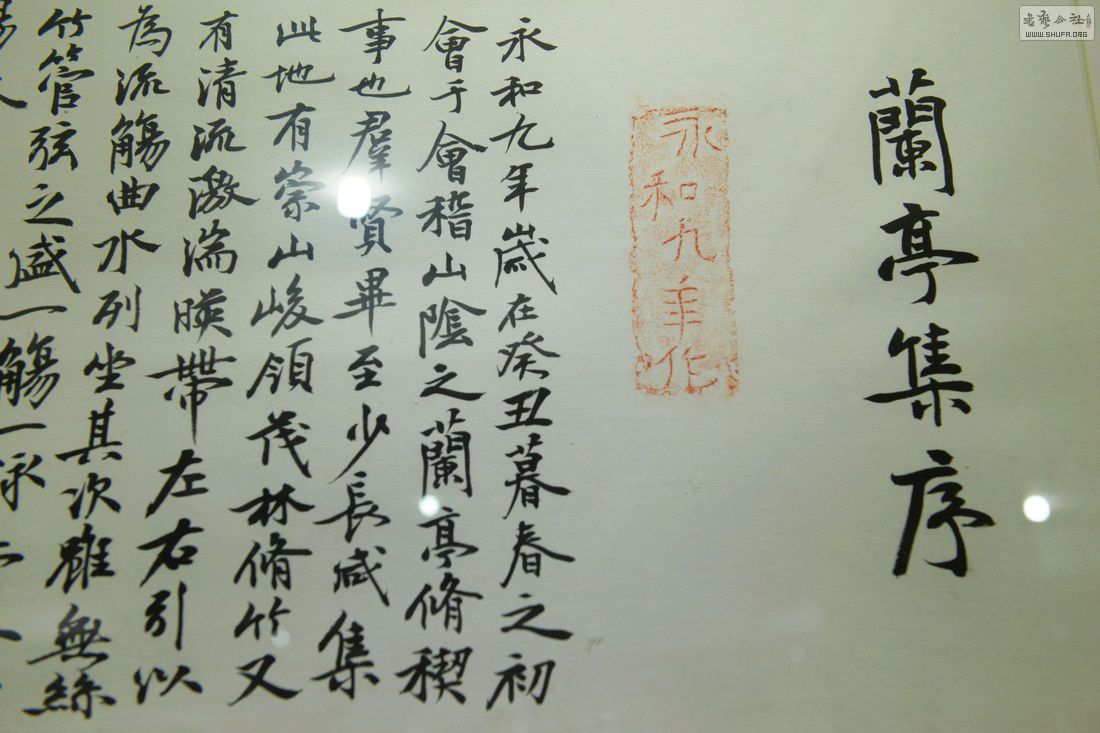 蘭亭集序
永和九年作
永和九年歲在癸丑暮春之初
會于會稽山陰之蘭亭脩稧
事也羣賢畢至少長咸集
此地有崇山峻領茂林脩竹又
有清流激湍暎帶左右引以
為流觴曲水列坐其次雖無絲
竹管弦之盛一觴一詠
WWW.SHUFA.ORG